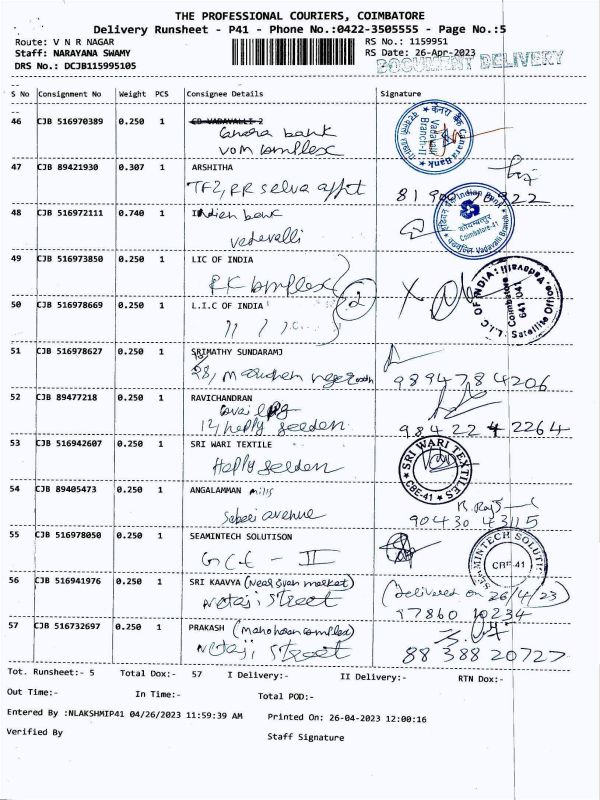 THE PROFESSIONAL COURIERS, COIMBATORE
Delivery Runsheet - P41 - Phone No.:0422-3505555 - Page No.:5
Route: V N R NAGAR RS No.: 1159951
Staff: NARAYANA SWAMY RS Date: 26-Apr-2023
DRS No.: DCJB115995105 DOCUMENT DELIVERY
S No Consignment No Weight PCS Consignee Details Signature
46 CJB 516970389 0.250 1 CB VADAVALLI 2
Canara bank
VOM complex
Canara Bank
Vadavalli
Branch-II
47 CJB 89421930 0.307 1 ARSHITHA
TF2, RR selva
48 CJB 516972111 0.740 1 Indian bank
vadavalli
Indian Bank
Coimbatore-41
Vadavalli Branch
49 CJB 516973850 0.250 1 LIC OF INDIA
RK complex
50 CJB 516978669 0.250 1 L.I.C OF INDIA
2
L.I.C OF INDIA: Vadavalli
Coimbatore
641 041
Satellite Office
51 CJB 516978627 0.250 1 SRIMATHY SUNDARAMJ
98947 84206
52 CJB 89477218 0.250 1 RAVICHANDRAN
98422 42264
53 CJB 516942607 0.250 1 SRI WARI TEXTILE
SRI WARI TEXTILES
CBE-41
54 CJB 89405473 0.250 1 ANGALAMMAN mills
avenue
90430 43115
55 CJB 516978050 0.250 1 SEAMINTECH SOLUTISON
GCE - II
CBE-41
56 CJB 516941976 0.250 1 SRI KAAVYA (Near sivan market) (Delivered on 26/4/23)
Netaji street 97860 10234
57 CJB 516732697 0.250 1 PRAKASH (Manoharan complex)
Netaji street 88388 20727
Tot. Runsheet:- 5 Total Dox:- 57 I Delivery:- II Delivery:- RTN Dox:-
Out Time:- In Time:- Total POD:-
Entered By :NLAKSHMIP41 04/26/2023 11:59:39 AM Printed On: 26-04-2023 12:00:16
Verified By Staff Signature